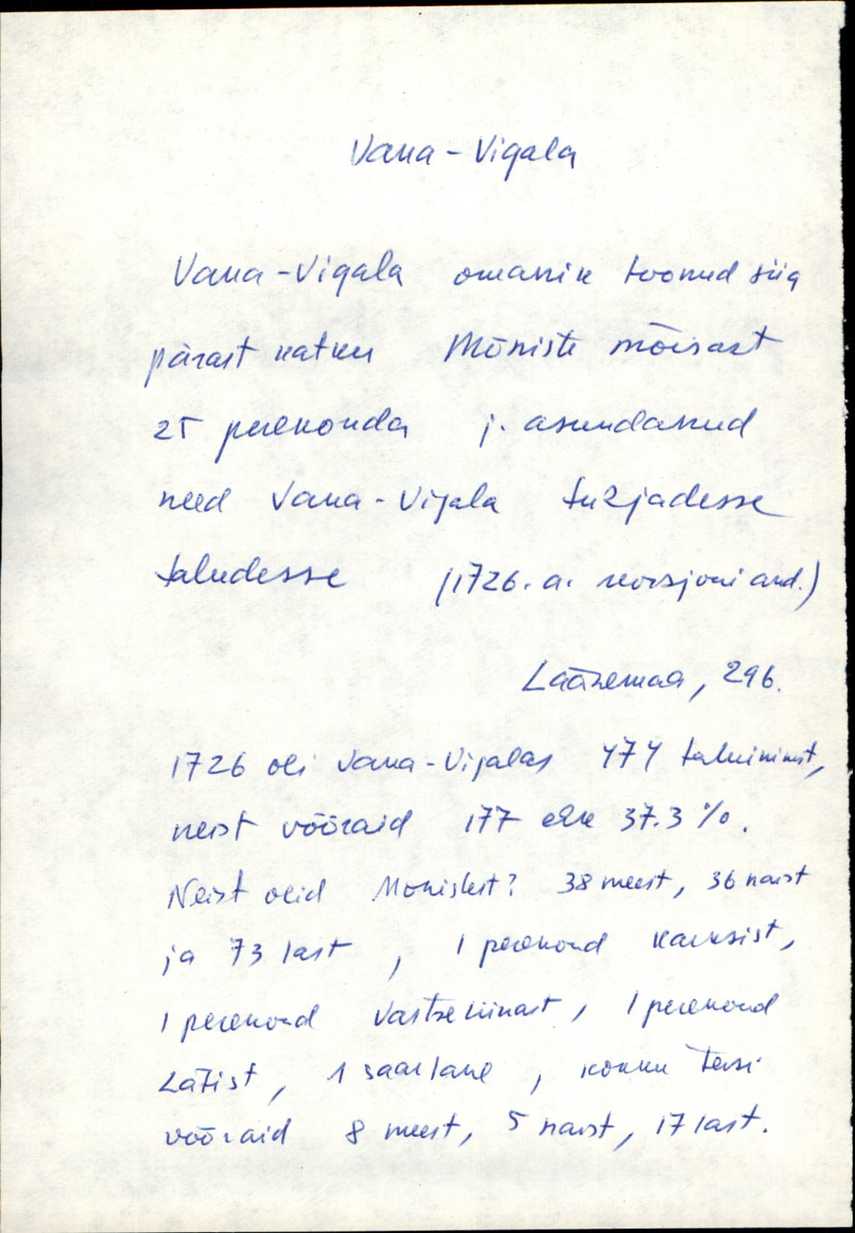 Vana-Vigala
Vana-Vigala omanik toonud siia
pärast katku Mõniste mõisast
25 perekonda j. asundanud
need Vana-Vigala tühjadesse
taludesse (1726. a. revisjoni and.)
Läänemaa, 296.
1726 oli Vana-Vigalas 474 taluinimest,
neist võõraid 177 ehk 37.3 %.
Neist olid Monistest? 38 meest, 36 naist
ja 73 last, 1 perekond Karksist,
1 perekond Vastseliinast, 1 perekond
Lätist, 1 saarlane, kokku teisi
võõraid 8 meest, 5 naist, 17 last.